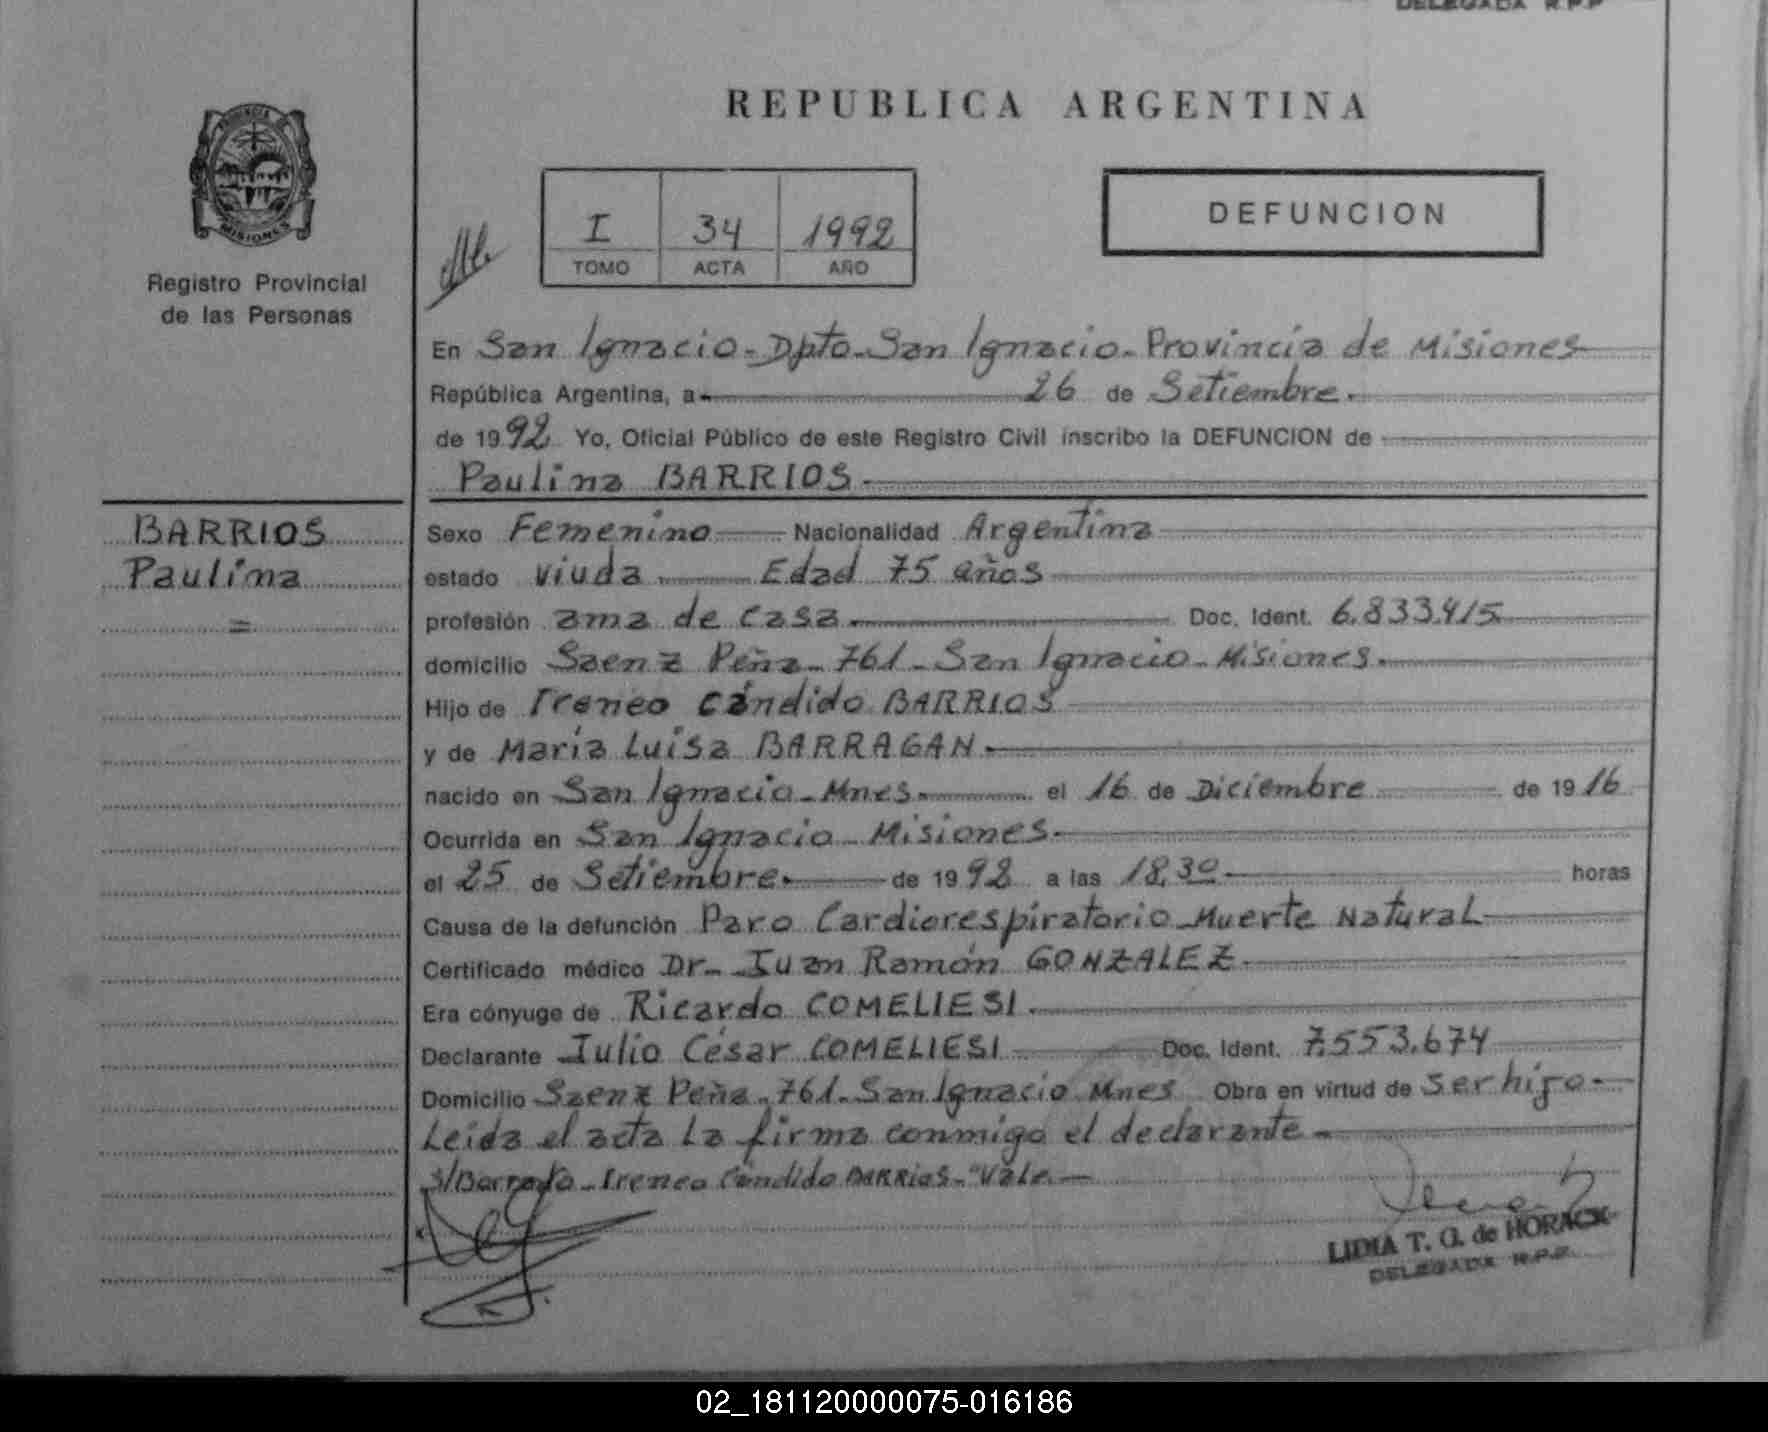 DELEGADA R.P.P
REPUBLICA ARGENTINA
PROVINCIA
MISIONES
Registro Provincial
de las Personas
I 34 1992
TOMO ACTA AÑO
DEFUNCION
En San Ignacio - Dpto - San Ignacio - Provincia de Misiones
República Argentina, a 26 de Setiembre.
de 1992 Yo, Oficial Público de este Registro Civil inscribo la DEFUNCION de
Paulina BARRIOS
BARRIOS
Paulina
=
Sexo Femenino Nacionalidad Argentina
estado viuda Edad 75 años
profesión ama de casa. Doc. Ident. 6.833.415
domicilio Saenz Peña - 761 - San Ignacio - Misiones.
Hijo de Ireneo Cándido BARRIOS
y de María Luisa BARRAGAN.
nacido en San Ignacio - Mnes. el 16 de Diciembre de 1916
Ocurrida en San Ignacio - Misiones.
el 25 de Setiembre. de 1992 a las 18,30 horas
Causa de la defunción Paro Cardiorespiratorio - Muerte Natural
Certificado médico Dr. Juan Ramón GONZALEZ.
Era cónyuge de Ricardo COMELIESI.
Declarante Julio César COMELIESI Doc. Ident. 7.553.674
Domicilio Saenz Peña - 761 - San Ignacio Mnes Obra en virtud de ser hijo.
Leída el acta la firma conmigo el declarante.
S/Borrado - Ireneo Cándido BARRIOS - "Vale.
LIDIA T. G. de HORACK
DELEGADA R.P.P.
02_181120000075-016186